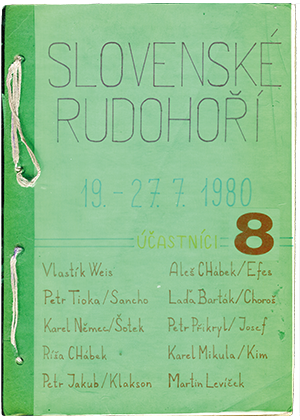 SLOVENSKÉ
RUDOHOŘÍ
19. - 27. 7. 1980
ÚČASTNÍCI 8
Vlastík Weis
Petr Tioka/Sancho
Karel Němec/Šotek
Ríša CHábek
Petr Jakub/Klakson
Aleš CHábek/Efes
Laďa Barták/Choroš
Petr Přikryl/Josef
Karel Mikula/Kim
Martin Levíček